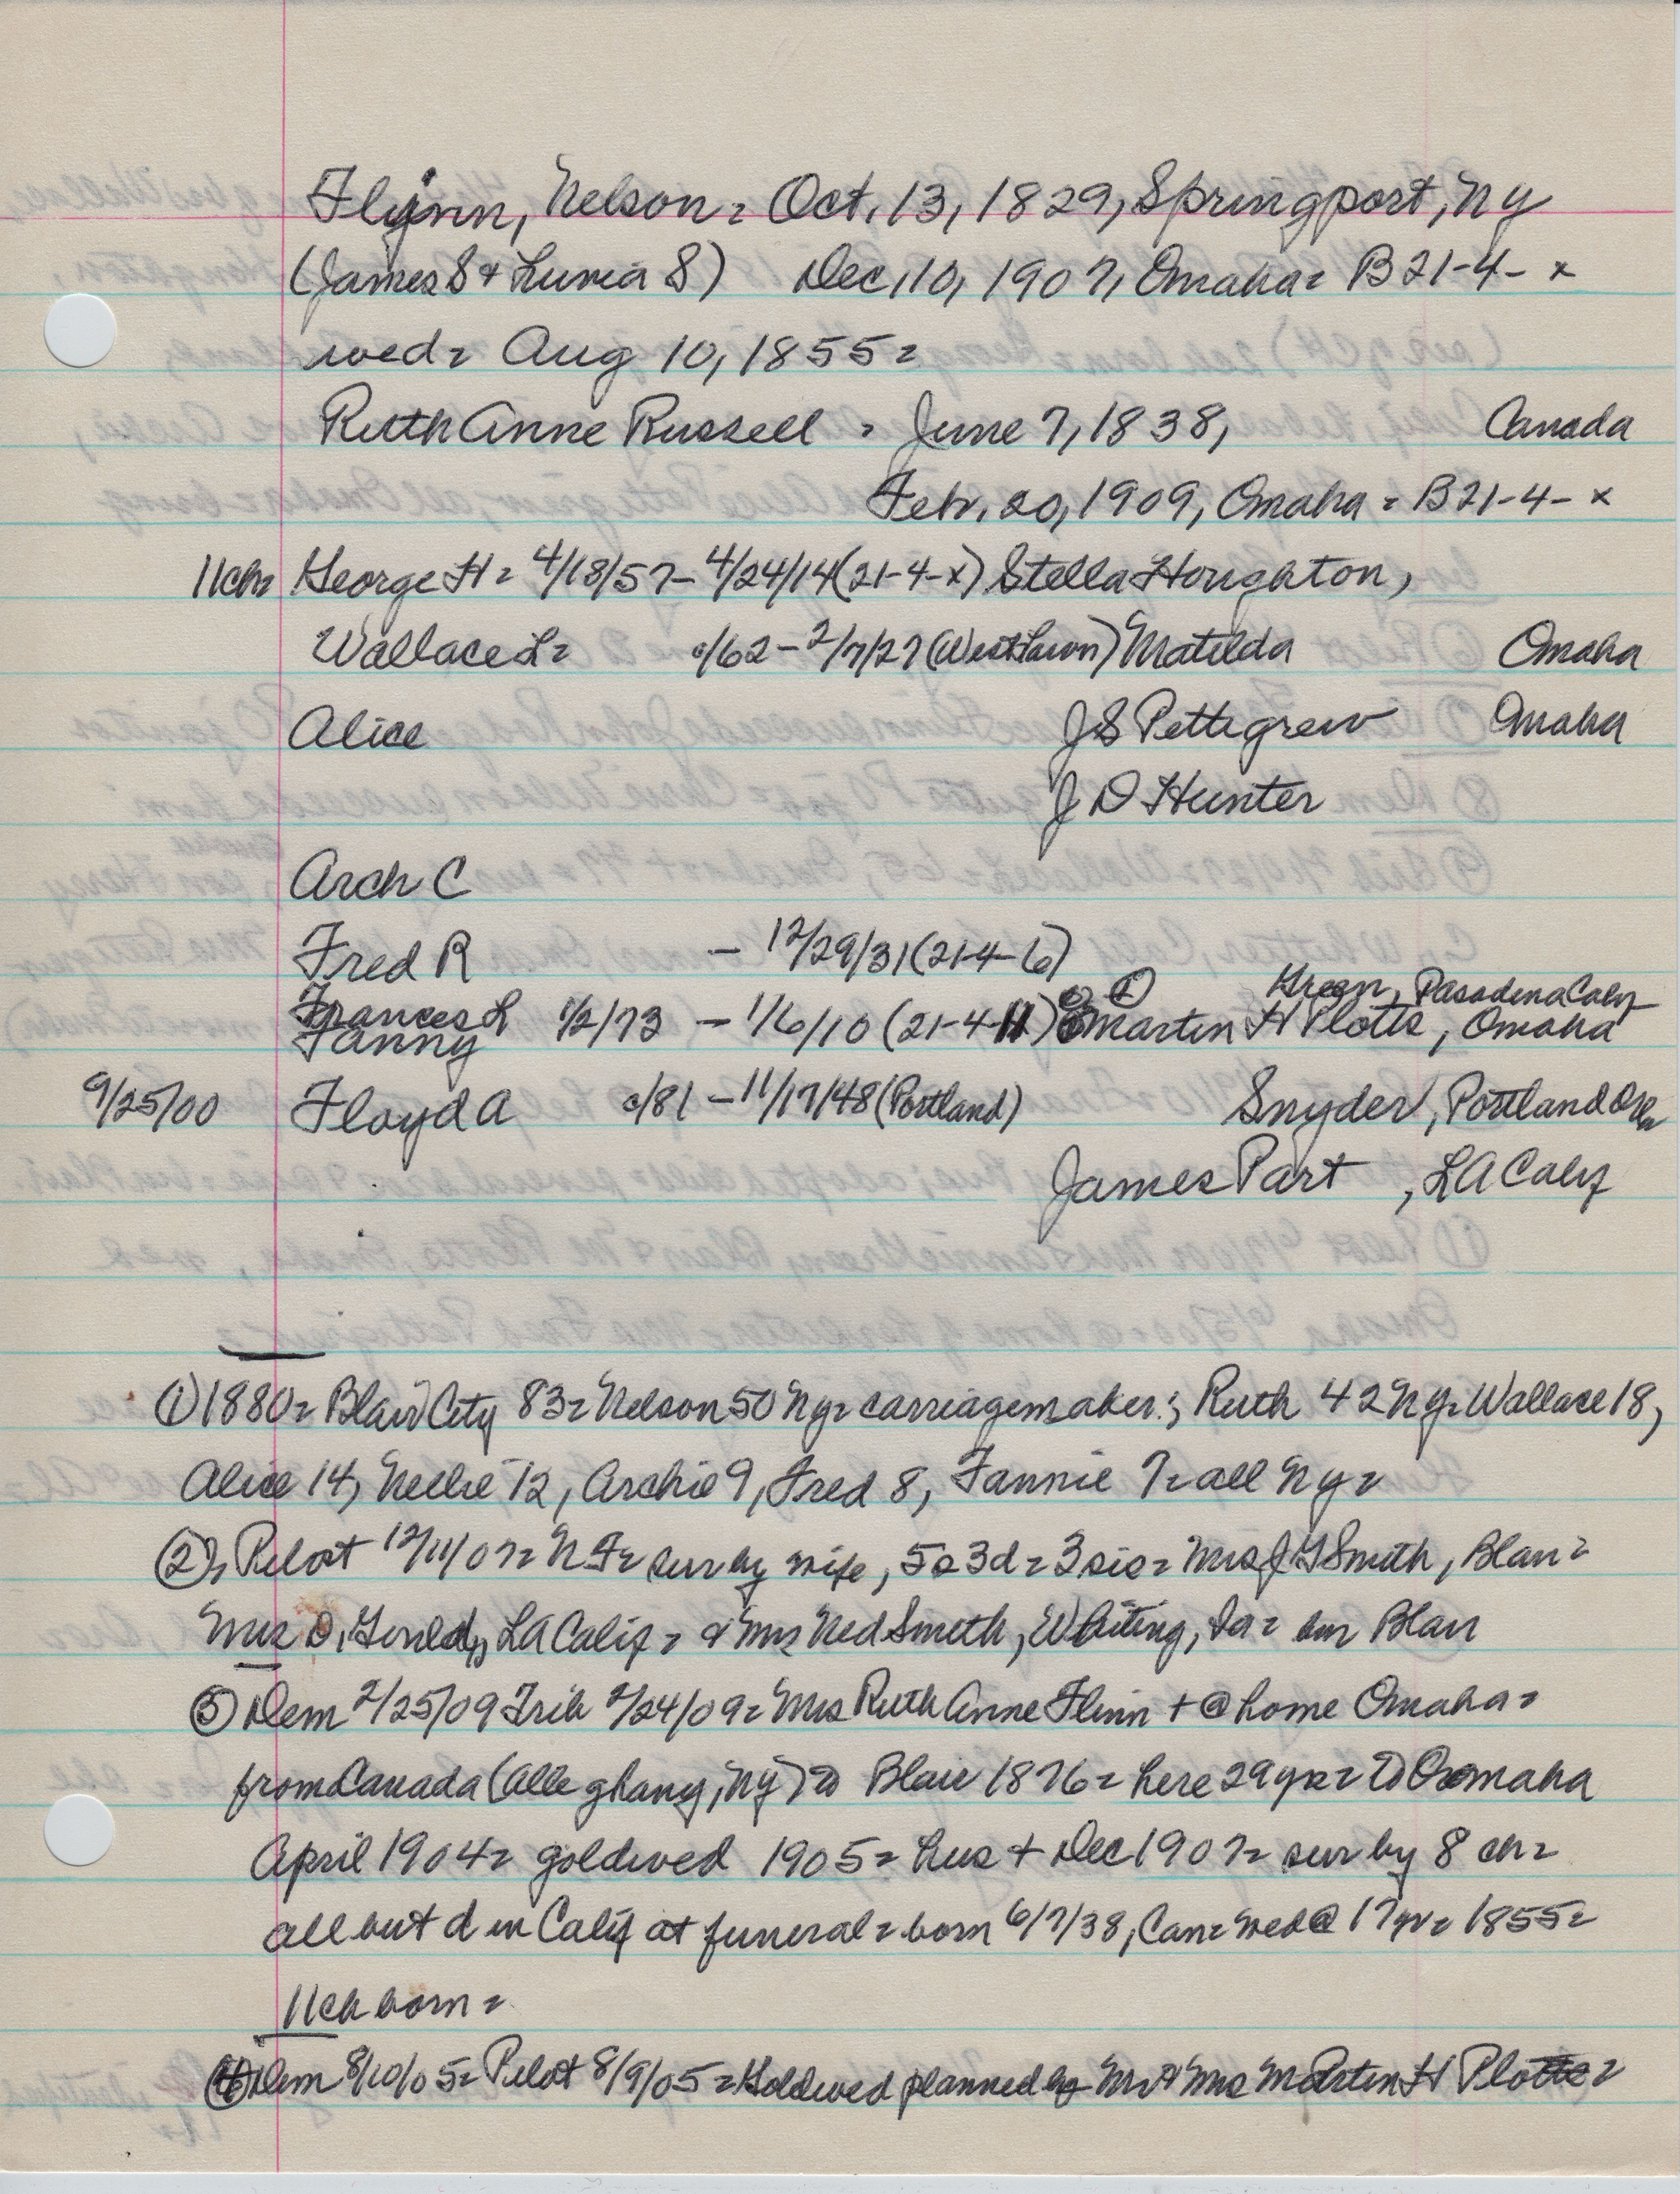 Flynn, Nelson = Oct. 13, 1829, Springport, NY
(James S & Luria S) Dec. 10, 1907, Omaha = B 21-4- x
wed = Aug 10, 1855 =
Ruth Anne Russell = June 7, 1838, Canada
Febr. 20, 1909, Omaha = B 21-4- x
11ch = George H = 4/18/57 - 4/24/14 (21-4-x) Stella Houghton,
Wallace L = c/62 - 2/7/27 (West Lawn) Matilda Omaha
Alice J S Pettigrew Omaha
J D Hunter
Arch C
Fred R - 12/29/31 (21-4-6)
Green, Pasadena Calif
Frances L 1/2/73 - 1/6/10 (21-4-11) ② Martin H Plotts, Omaha
Fanny
9/25/00 Floyd A c/81 - 11/17/48 (Portland) Snyder, Portland Ore
James Part, LA Calif
① 1880 = Blair City 83 = Nelson 50 NY = carriagemaker; Ruth 42 NY = Wallace 18,
Alice 14, Nellie 12, Archie 9, Fred 8, Fannie 7 = all NY =
② Pilot 12/11/07 = N F = sur by wife, 5s 3d = 3 sis = Mrs J G Smith, Blair =
Mrs D. Gould, LA Calif = & Mrs Ned Smith, Whiting, Ia = bur Blair
③ Dem 2/25/09 Trib 2/24/09 = Mrs Ruth Anne Flinn + @ home Omaha =
from Canada (Alleghany, NY) to Blair 1876 = here 29 yrs = to Omaha
April 1904 = goldwed 1905 = hus + Dec 1907 = sur by 8 ch =
all but d in Calif at funeral = born 6/7/38, Can = wed @ 17 yr = 1855 =
11ch born =
④ Dem 8/10/05 = Pilot 8/9/05 = Goldwed planned by Mr & Mrs Martin H Plotts =